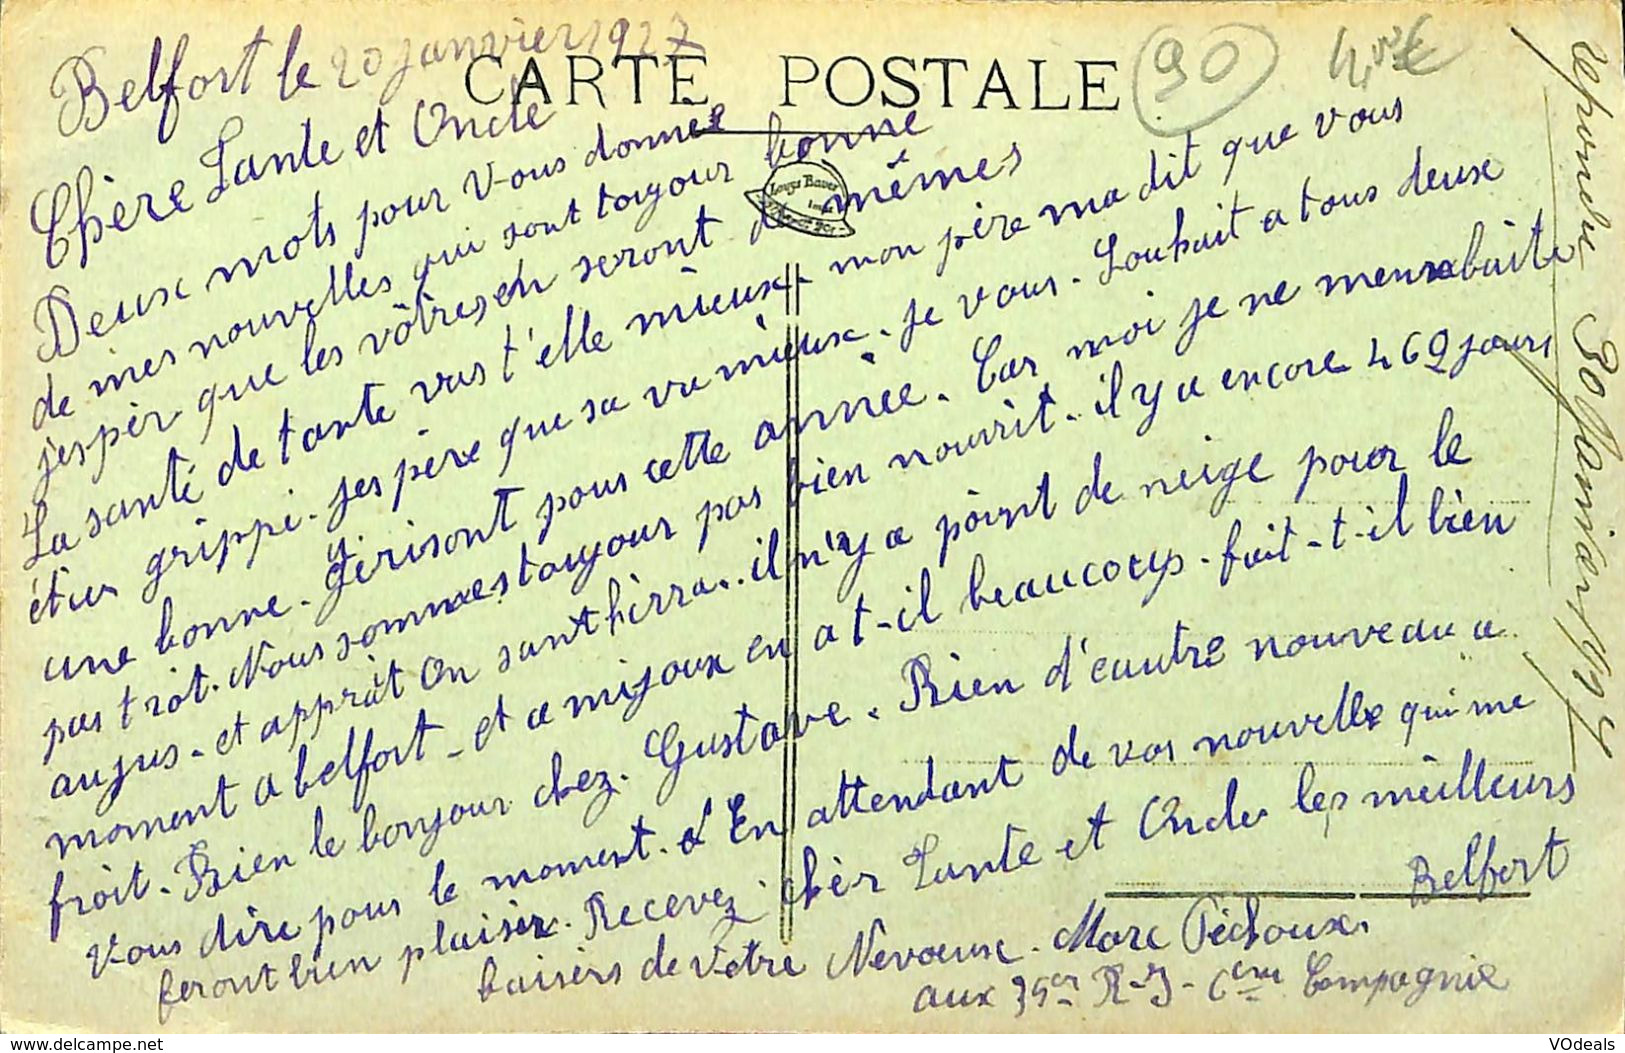 Belfort le 20 janvier 1927
CARTE POSTALE
90
4,00€
Chère Tante et Oncle
Deux mots pour Vous donnée
de mes nouvelles qui sont toujour bonne
j'espèr que les vôtres en seront de mêmes
La santé de tante vas t'elle mieux. mon père ma dit que vous
étiez grippé. j'espère que sa va mieux. je vous. Souhait a tous deux
une bonne. gérisont pous cette année. Car moi je ne menubuite
pas trot. Nous sommes toujour pas bien nourrit. il y a encore 469 jours
aujus. et apprèt on sant hirra.. il n'y a point de neige pour le
moment a belfort. et a mijoux en at-il beaucoup. fait-t-il bien
froit. Bien le bonjour chez. Gustave. Rien d'eautre nouveau a
Vous dire pous le moment. En attendant de vos nouvelle qui me
feront bien plaisir. Recevez chèr Tante et Oncle les meilleurs
baisers de votre Nevoeux. Marc Péchoux. Belfort
aux 35er R-I- 6eme Compagnie
repondu 30 Janvier 1927
VOdeals